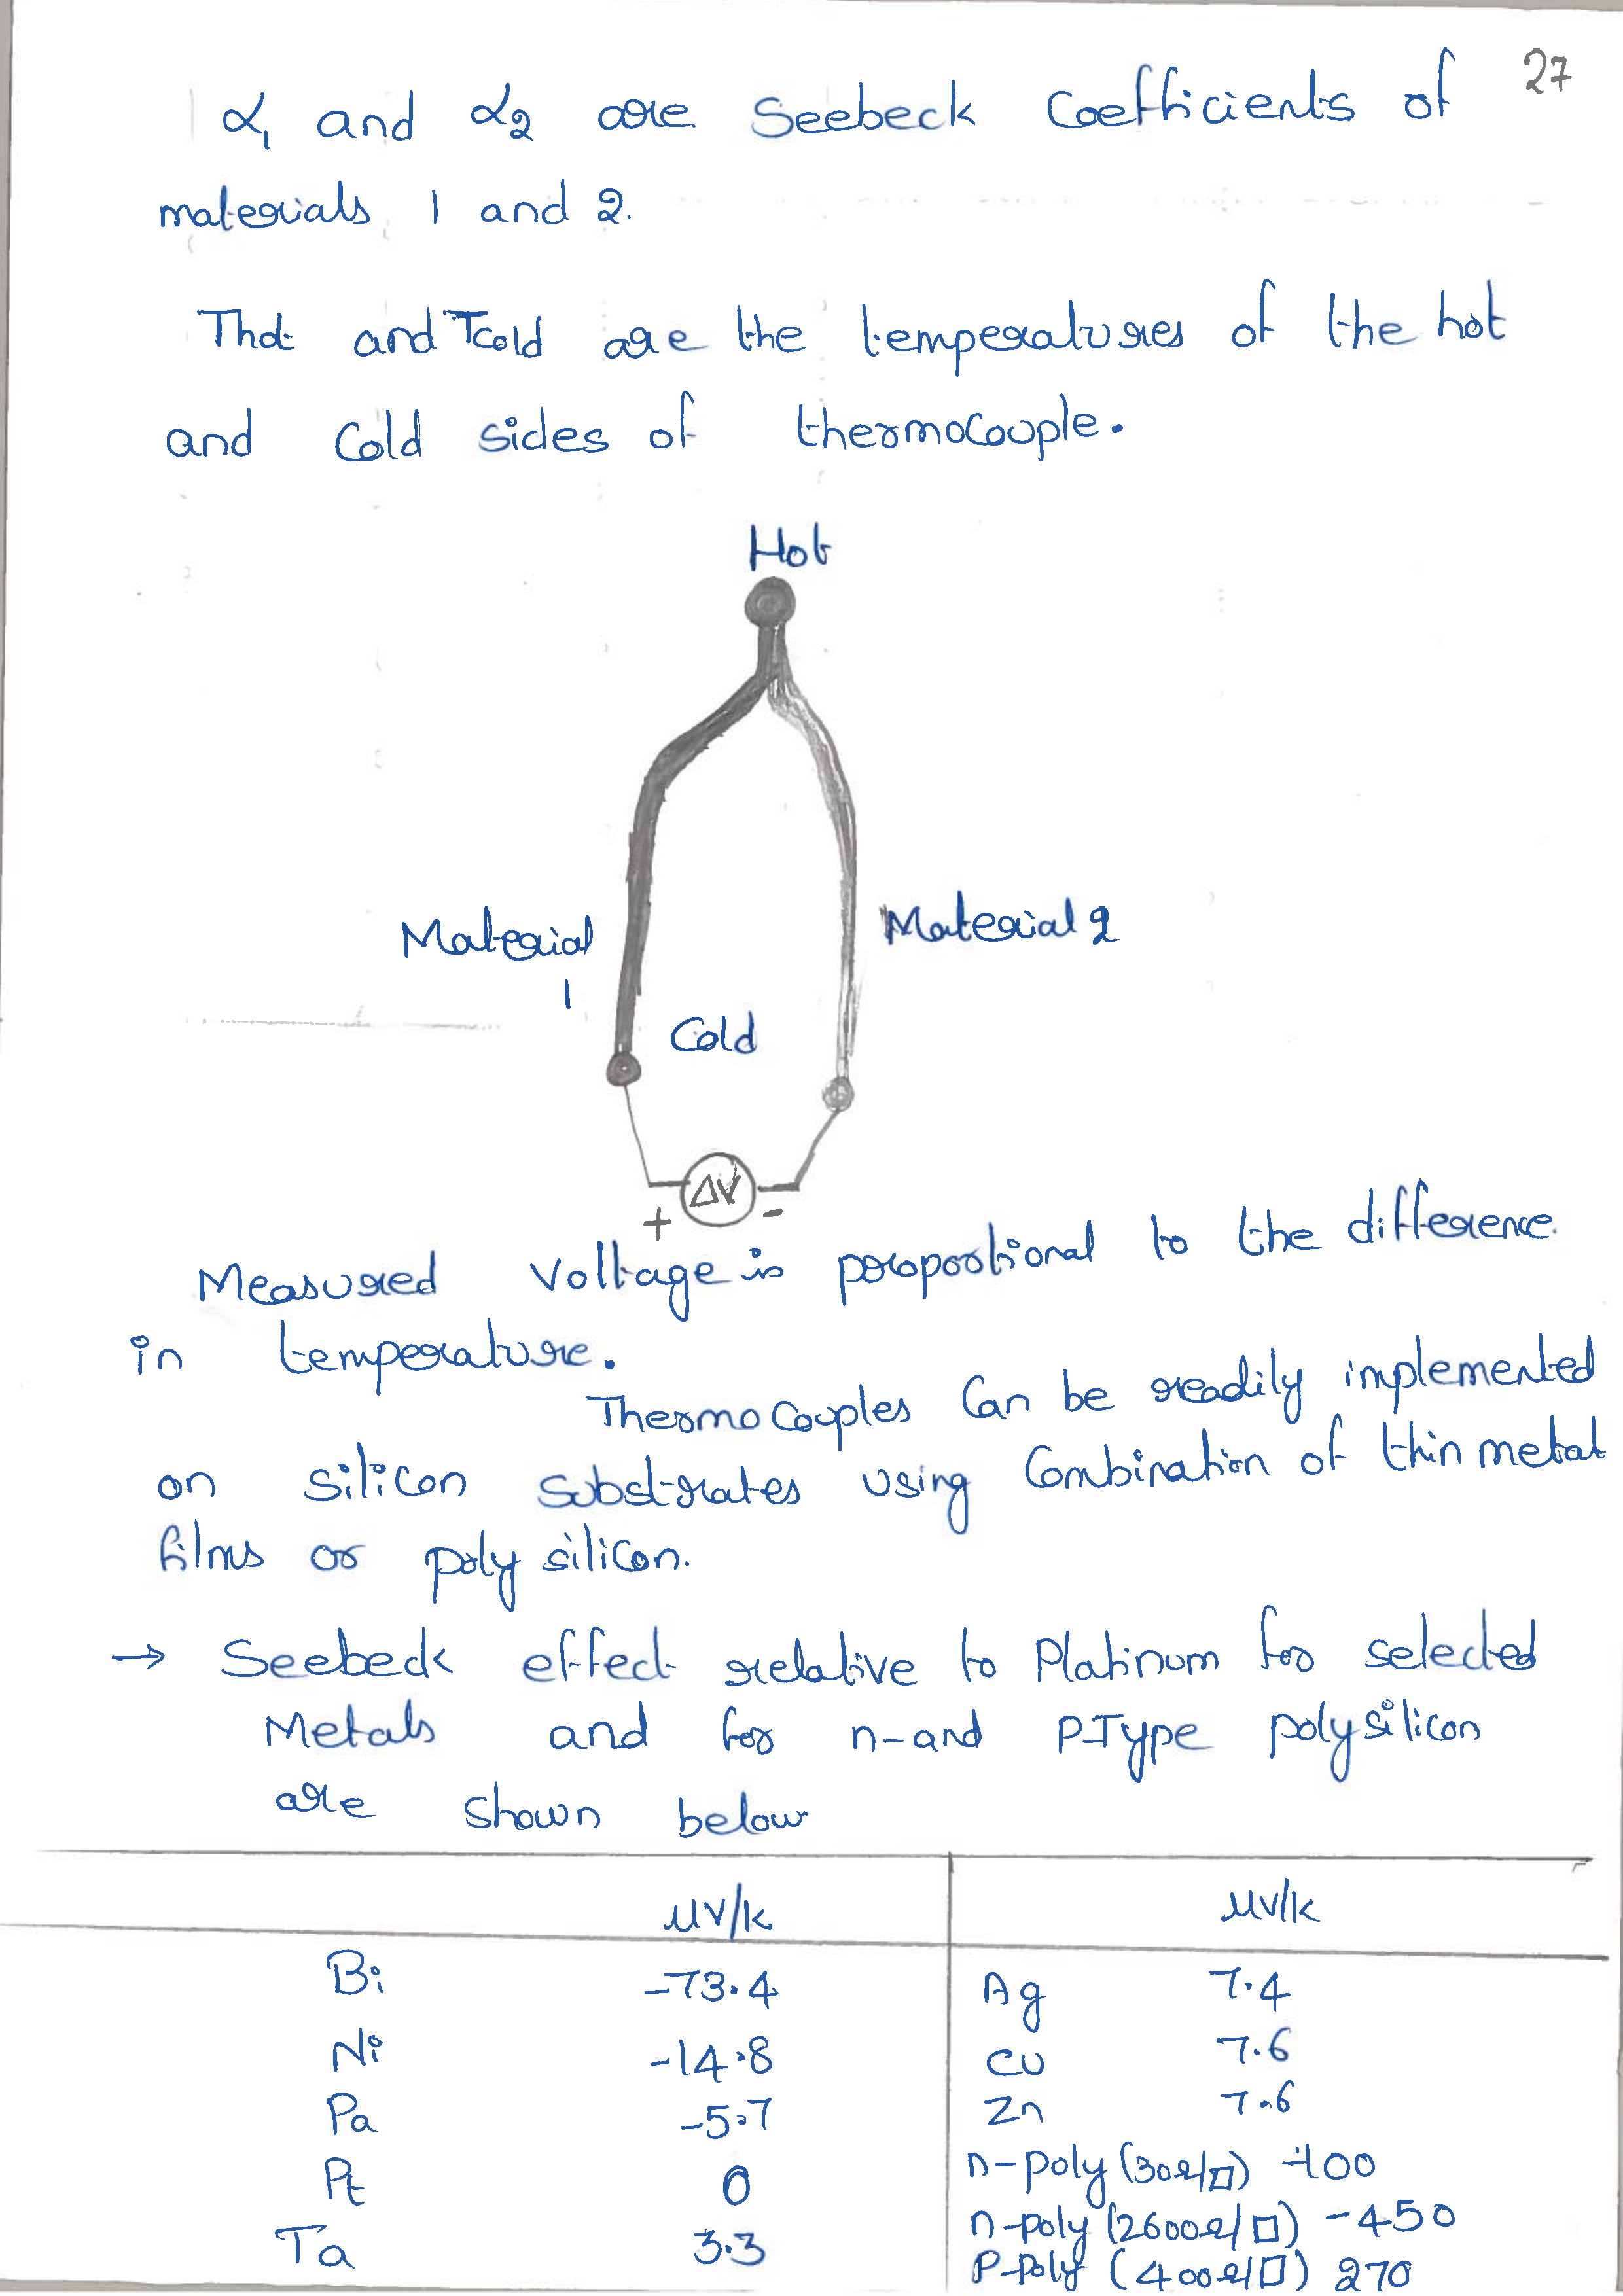 27
α1 and α2 are Seebeck Coefficients of
materials 1 and 2.
Thot and Tcold are the temperatures of the hot
and Cold sides of thermocouple.
Hot
Material 1
Material 2
Cold
ΔV
+ -
Measured Voltage is proportional to the difference
in temperature.
Thermo Couples Can be readily implemented
on silicon substrates using Combination of thin metal
films or poly silicon.
→ Seebeck effect relative to Platinum for selected
Metals and for n-and P-Type polysilicon
are shown below
μV/k μV/k
Bi -73.4 Ag 7.4
Ni -14.8 Cu 7.6
Pa -5.7 Zn 7.6
Pt 0 n-poly (30Ω/□) -100
Ta 3.3 n-poly (2600Ω/□) -450
P-poly (400Ω/□) 270